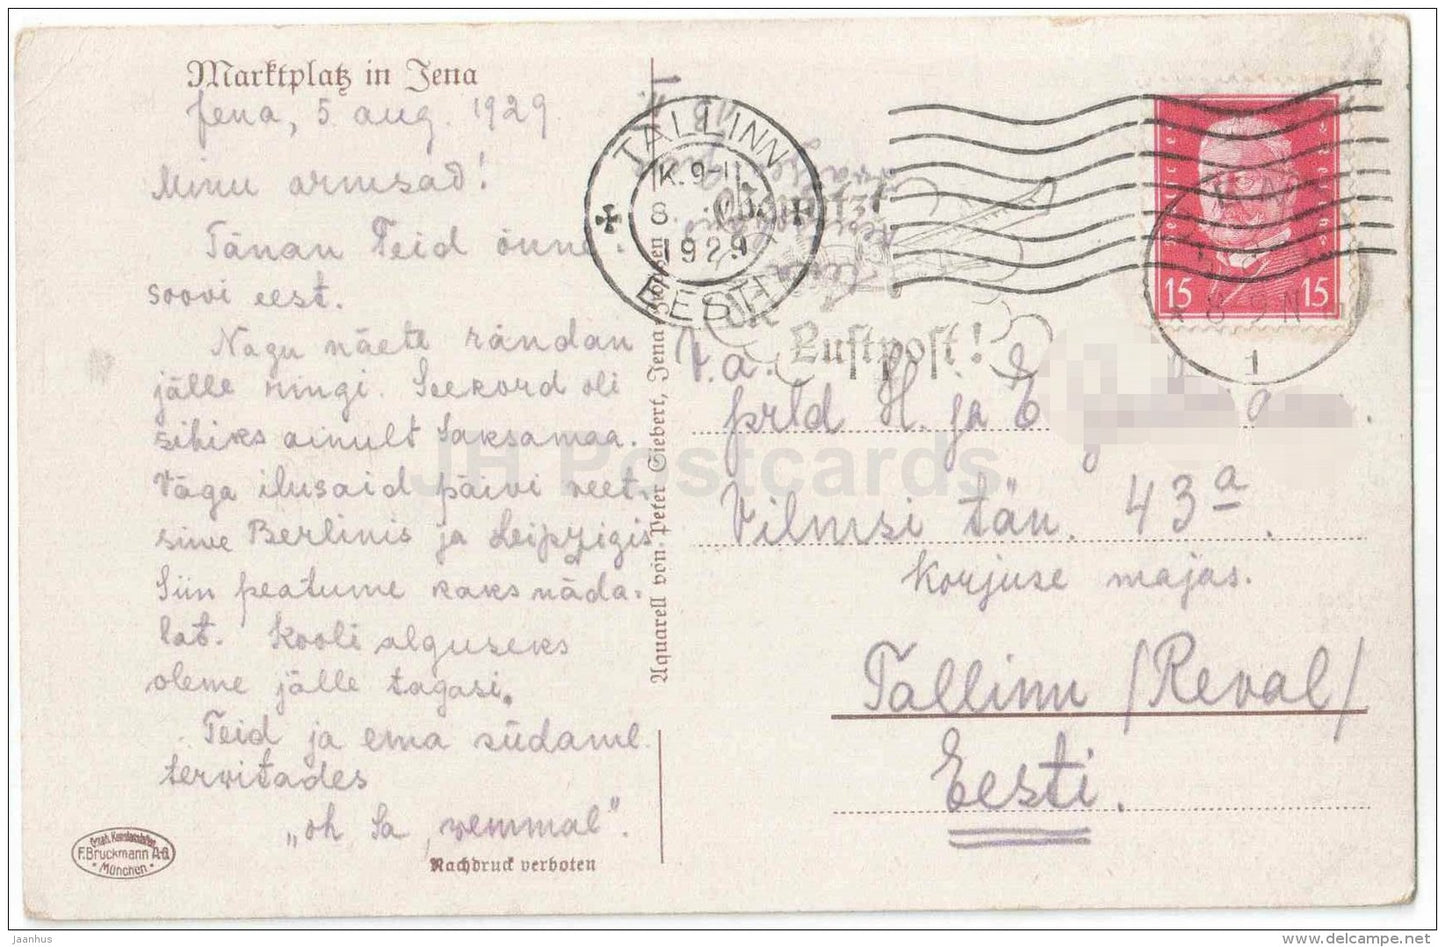 Marktplatz in Jena
Jena, 5 aug. 1929
Minu armsad!
Tänan Teid õnne-
soovi eest.
Nagu näete rändan
jälle ringi. Seekord oli
sihiks ainult Saksamaa.
Väga ilusaid päivi veet-
sime Berlinis ja Leipzigis.
Siin peatume kaks näda-
lat. Kooli alguseks
oleme jälle tagasi.
Teid ja ema südamel.
tervitades
„oh Sa vemmal”.
F. Bruckmann A-G.
München
Nachdruck verboten
Aquarell von Peter Siebert, Jena
TALLINN
K. 9-11
8.
1929
EESTI
Luftpost!
15 15
1
V. a.
prld H. ja E
Vilmsi tän. 43a.
Korjuse majas.
Tallinn /Reval/
Eesti.
JH Postcards
jaanhus
www.delcampe.net